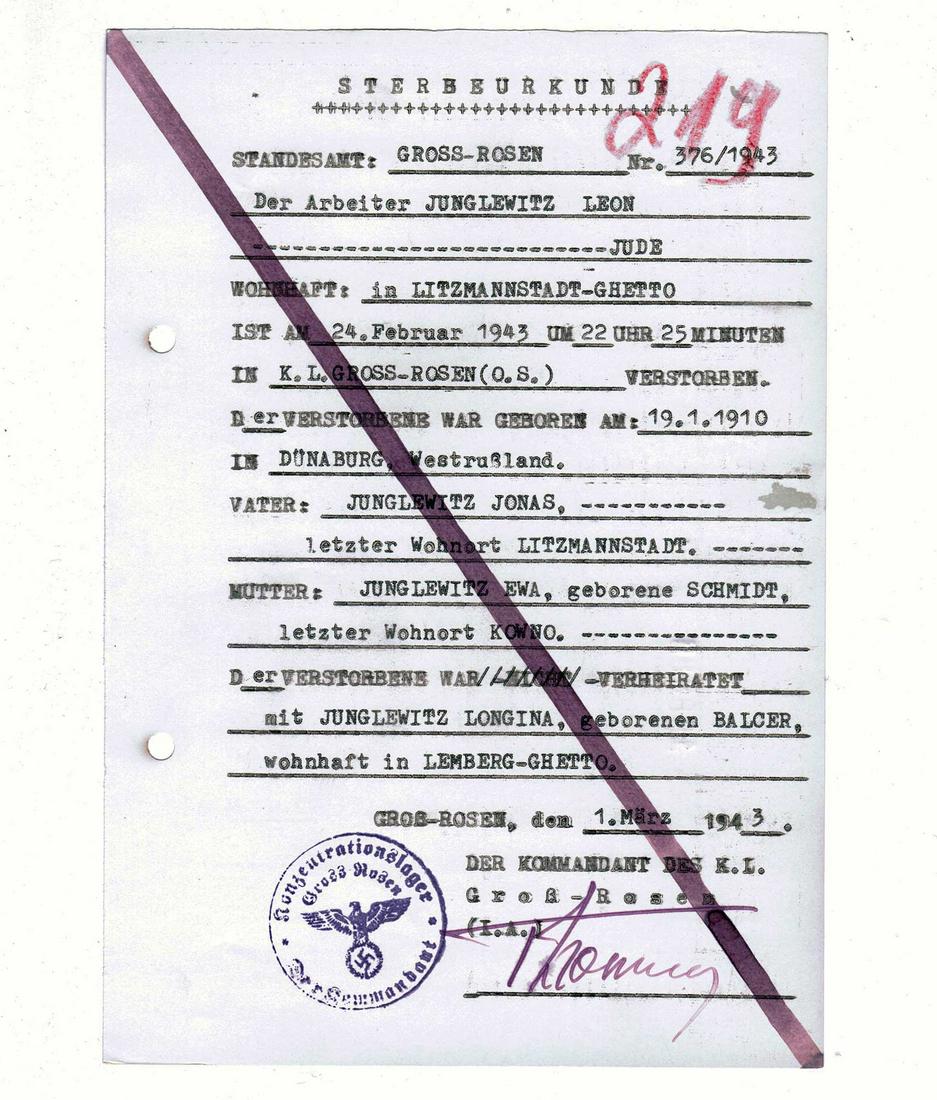 STERBEURKUNDE
219
STANDESAMT: GROSS-ROSEN Nr. 376/1943
Der Arbeiter JUNGLEWITZ LEON
---------------------------JUDE
WOHNHAFT: in LITZMANNSTADT-GHETTO
IST AM 24.Februar 1943 UM 22 UHR 25 MINUTEN
IN K.L.GROSS-ROSEN(O.S.) VERSTORBEN.
Der VERSTORBENE WAR GEBOREN AM: 19.1.1910
IN DÜNABURG, Westrußland.
VATER: JUNGLEWITZ JONAS, -----------
letzter Wohnort LITZMANNSTADT. -------
MUTTER: JUNGLEWITZ EWA, geborene SCHMIDT,
letzter Wohnort KOWNO. ---------------
Der VERSTORBENE WAR -VERHEIRATET
mit JUNGLEWITZ LONGINA, geborenen BALCER,
wohnhaft in LEMBERG-GHETTO.
GROß-ROSEN, den 1.März 1943.
DER KOMMANDANT DES K.L.
Groß-Rosen
(I.A.)
Konzentrationslager
Gross Rosen
Der Kommandant